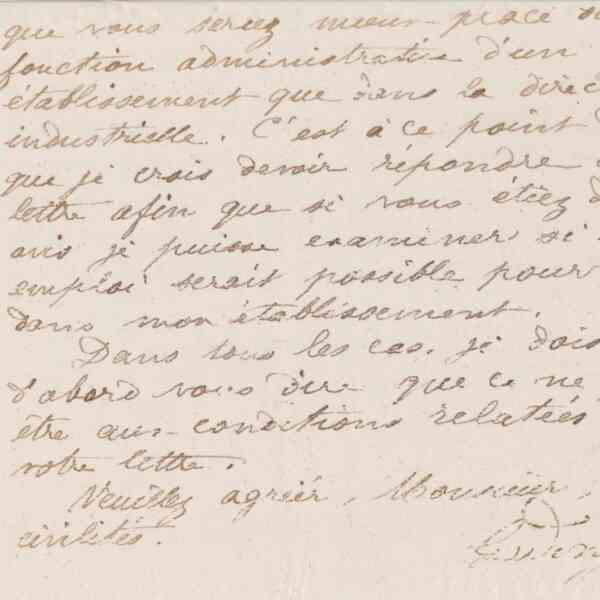 que vous seriez mieux placé
fonction administrative d'un
établissement que dans la direc
industrielle. C'est à ce point
que je crois devoir répondre
lettre afin que si vous étiez d
avis je puisse examiner si
emploi serait possible pour
dans mon établissement.
Dans tous les cas, je dois
d'abord vous dire que ce ne
être aux conditions relatées
votre lettre.
Veuillez agréer, Monsieur,
civilités.